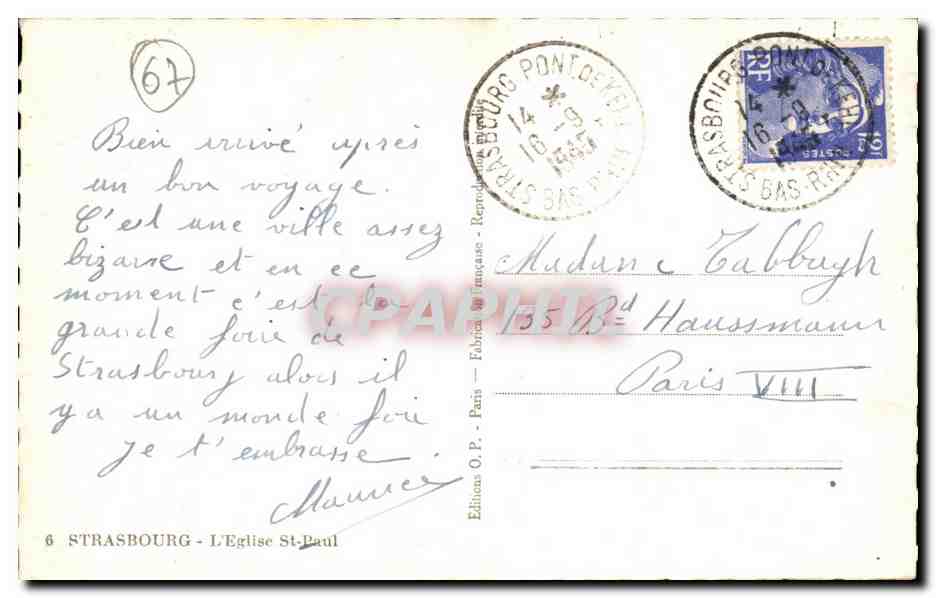 67
Bien arrivé après
un bon voyage.
C'est une ville assez
bizarre et en ce
moment c'est la
grande foire de
Strasbourg alors il
y a un monde fou
Je t'embrasse
Maurice
6 STRASBOURG - L'Eglise St-Paul
Editions O. P. - Paris — Fabrication Française - Reproduction interdite
STRASBOURG PONT DE KEHL
14 *
16 -9
BAS-RHIN
STRASBOURG PONT DE KEHL
14 *
16 -9
BAS-RHIN
RF
POSTES
12F
Madame Tabbagh
135 Bd Haussmann
Paris VIII
CPAPHIL